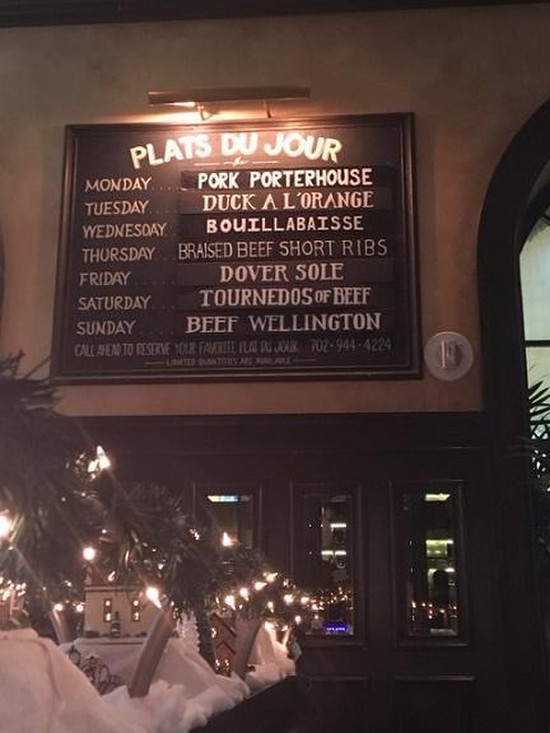 PLATS DU JOUR
MONDAY.... PORK PORTERHOUSE
TUESDAY.... DUCK A L'ORANGE
WEDNESDAY.. BOUILLABAISSE
THURSDAY... BRAISED BEEF SHORT RIBS
FRIDAY..... DOVER SOLE
SATURDAY... TOURNEDOS OF BEEF
SUNDAY..... BEEF WELLINGTON
CALL AHEAD TO RESERVE YOUR FAVORITE PLAT DU JOUR 702-944-4224
LIMITED QUANTITIES ARE AVAILABLE